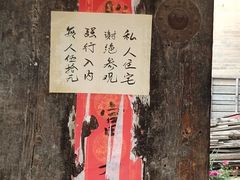 私人住宅
谢绝参观
强行入内
每人伍拾元